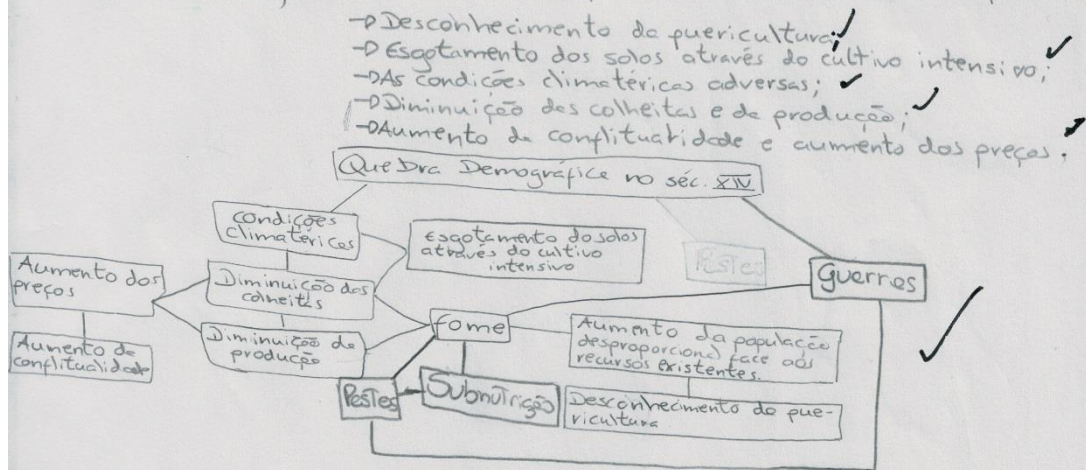 →Desconhecimento da puericultura;
→Esgotamento dos solos através do cultivo intensivo;
→As condições climatéricas adversas;
→Diminuição das colheitas e da produção;
→Aumento da conflitualidade e aumento dos preços.
Quebra Demográfica no séc. XIV
Condições
climatéricas
Esgotamento do solos
através do cultivo
intensivo
Pestes
guerras
Aumento dos
preços
Diminuição das
colheitas
fome
Aumento da população
desproporcional face aos
recursos existentes.
Aumento da
conflitualidade
Diminuição da
produção
Pestes
Subnutrição
Desconhecimento da pue-
ricultura